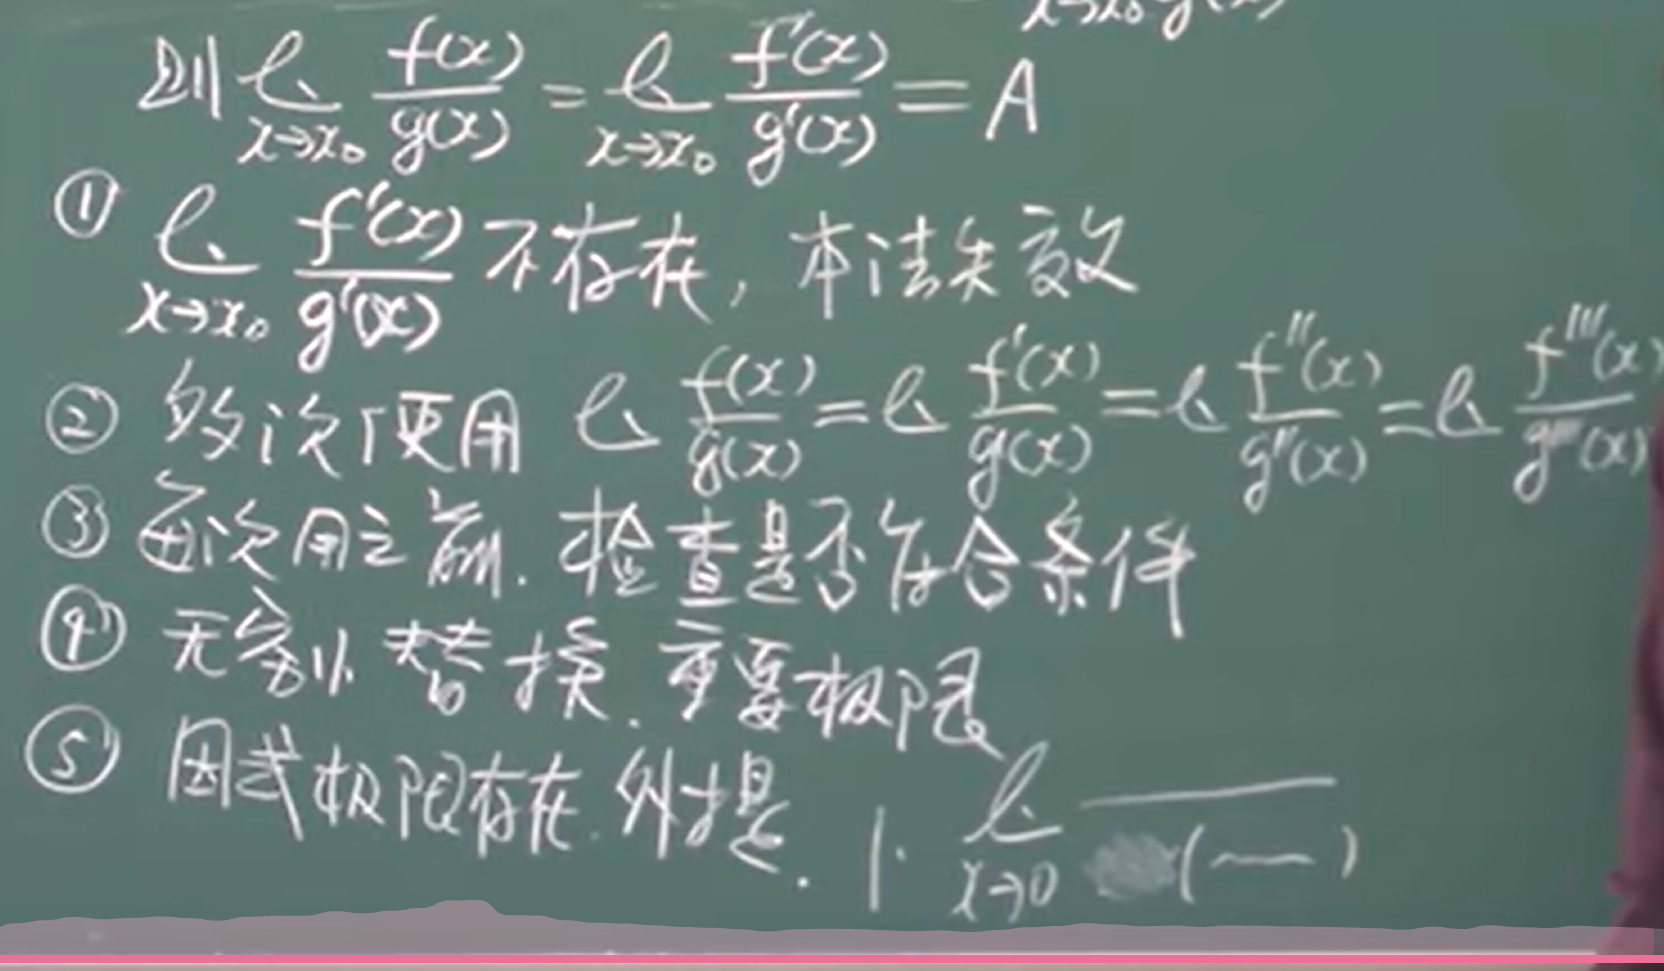 x→x₀ g(x)
则 lim x→x₀ f(x)/g(x) = lim x→x₀ f'(x)/g'(x) = A
① lim x→x₀ f'(x)/g'(x) 不存在, 本法失效
② 多次使用 lim f(x)/g(x) = lim f'(x)/g(x) = lim f''(x)/g''(x) = lim f'''(x)/g'''(x)
③ 每次用之前. 检查是否符合条件
④ 无穷小替换. 重要极限
⑤ 因式极限存在. 外提. 1· lim x→0 —/( — )